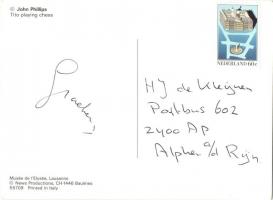 © John Phillips
Tito playing chess
NEDERLAND 60c
HJ de Kleijnen
Postbus 602
2400 AP
Alphen a/d Rijn
Musée de l'Elysée, Lausanne
© News Productions, CH-1446 Baulmes
55709 Printed in Italy